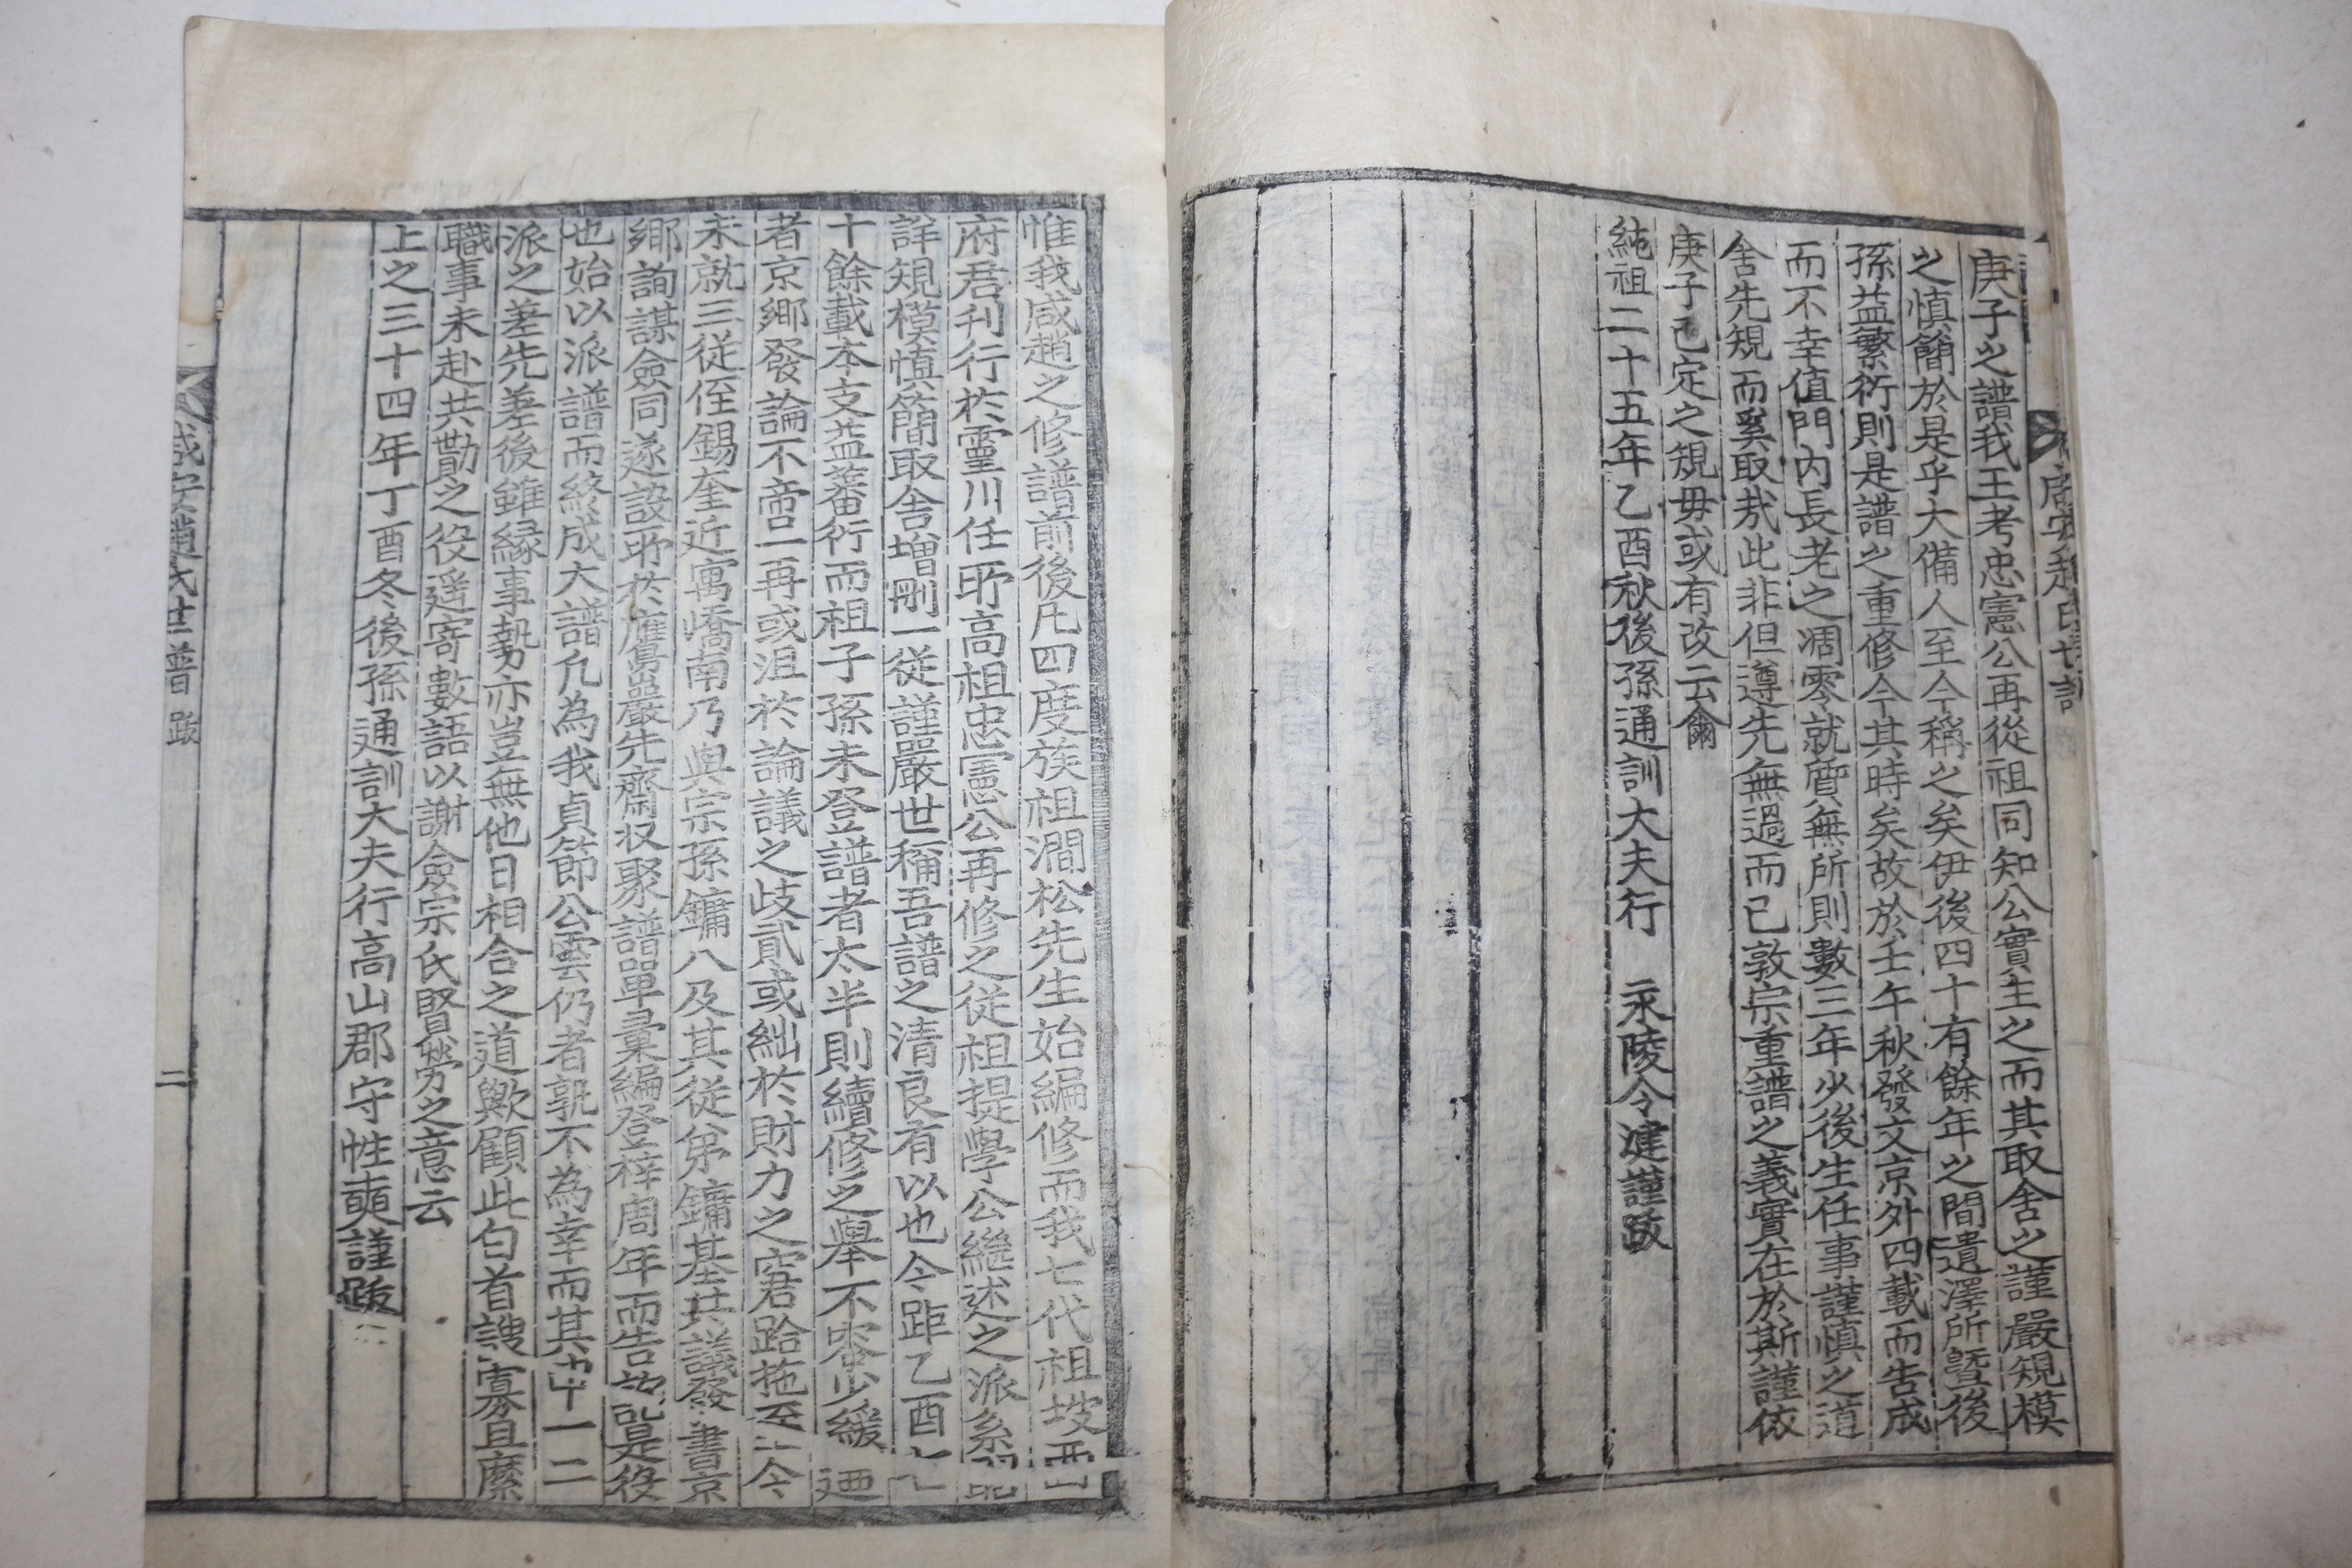 庚子之譜我王考忠憲公再從祖同知公實主之而其取舍之謹嚴規模
之慎簡於是乎大備人至今稱之矣伊後四十有餘年之間遺澤所曁後
孫益繁衍則是譜之重修今其時矣故於壬午秋發文京外四載而告成
而不幸值門內長老之凋零就質無所則數三年少後生任事謹慎之道
舍先規而奚取㢤此非但遵先無過而已敦宗重譜之義實在於斯謹依
庚子已定之規毋或有改云爾
純祖二十五年乙酉秋後孫通訓大夫行 永陵令 謹跋
惟我咸趙之修譜前後凡四度族祖澗松先生始編修而我七代祖坡西
府君刊行於靈川任所高祖忠憲公再修之從祖提學公繼述之派系
詳規模慎簡取舍增刪一從謹嚴世稱吾譜之清良有以也今距乙酉七
十餘載本支益蕃衍而祖子孫未登譜者太半則續修之擧不容少緩 迺
者京鄉發論不啻一再或沮於論議之歧貳或絀於財力之窘跲拖至于今
未就三從侄錫奎近寓嶠南乃與宗孫鏞八及其從弟鏞基共議發書京
鄉詢謀僉同遂設所於鷹巖先齋収聚譜單彙編登梓周年而告功是役
也始以派譜而終成大譜凡為我貞節公雲仍者孰不為幸而其中一二
派之差先差後雖緣事勢亦豈無他日相合之道歟顧此白首謏寡且縻
職事未赴共勷之役遥寄數語以謝僉宗氏賢勞之意云
上之三十四年丁酉冬後孫通訓大夫行高山郡守性奭謹跋
咸安趙氏世譜 跋 二